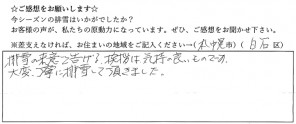 ☆ご感想をお願いします☆
今シーズンの排雪はいかがでしたか?
お客様の声が、私たちの原動力になっています。ぜひ、ご感想をお聞かせ下さい。
※差支えなければ、お住まいの地域をご記入ください→(札幌市)(白石区)
排雪の来意を告げる、挨拶は気持の良いものです。
大変、丁寧に排雪して頂きました。